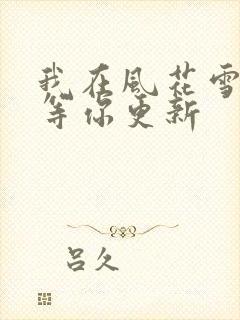 我在風花雪
等你更新
呂久